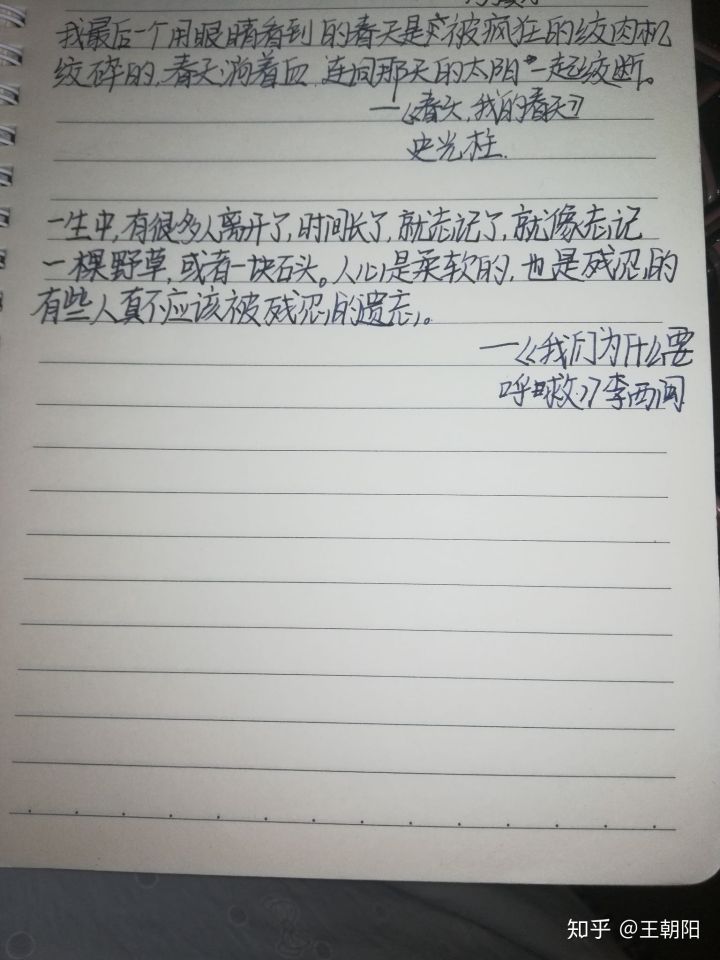 我最后一个用眼睛看到的春天是被疯狂的绞肉机
绞碎的，春天淌着血，连同那天的太阳一起绞断。
—《春天，我的春天》
史光柱.
一生中，有很多人离开了，时间长了，就忘记了，就像忘记
一棵野草，或者一块石头。人心是柔软的，也是残忍的
有些人真不应该被残忍的遗忘。
—《我们为什么要
呼救》李西闽
知乎 @王朝阳